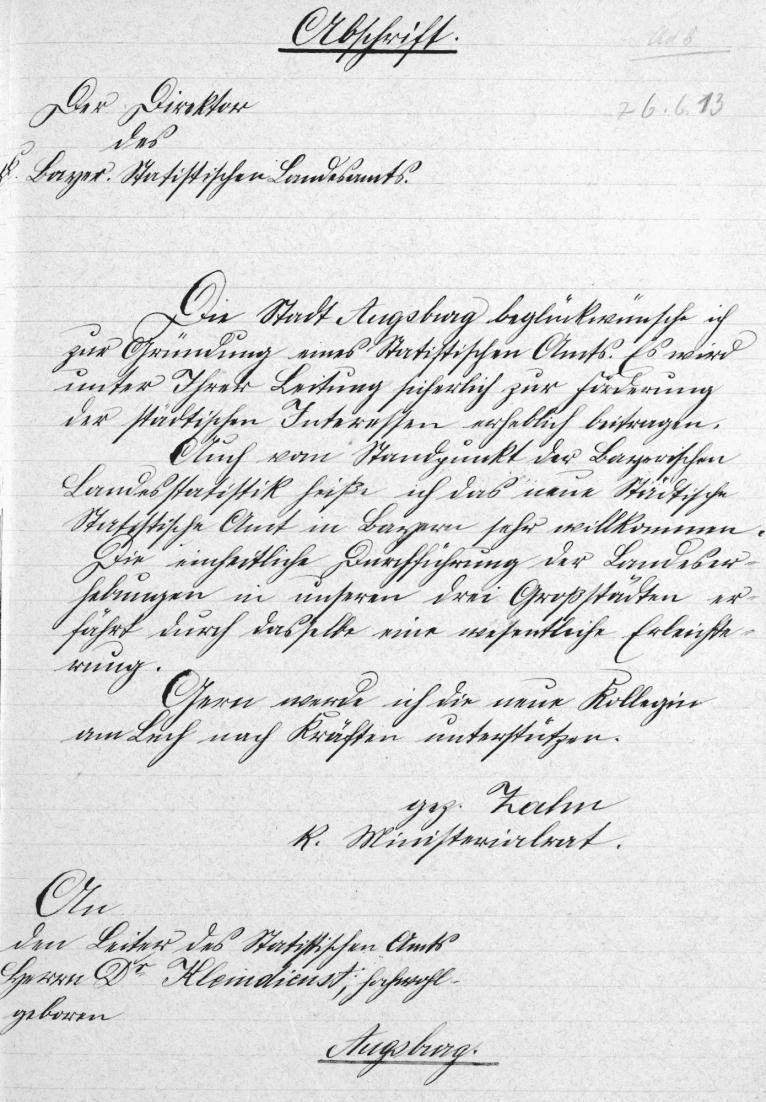 Abschrift.
26.6.13
Der Direktor
des
K. Bayer. Statistischen Landesamts.
Die Stadt Augsburg beglückwünsche ich
zur Gründung eines Statistischen Amts. Es wird
unter Ihrer Leitung sicherlich zur Förderung
der städtischen Interessen erheblich beitragen.
Auch vom Standpunkt der Bayerischen
Landesstatistik heiße ich das neue Städtische
Statistische Amt in Bayern sehr willkommen.
Die einheitliche Durchführung der Landeser-
hebungen in unseren drei Großstädten er-
fährt durch dasselbe eine wesentliche Erleichte-
rung.
Gern werde ich die neue Kollegin
am Lech nach Kräften unterstützen.
gez. Zahn
K. Ministerialrat.
An
den Leiter des Statistischen Amts
Herrn Dr Kleindienst, hochwohl-
geboren
Augsburg.